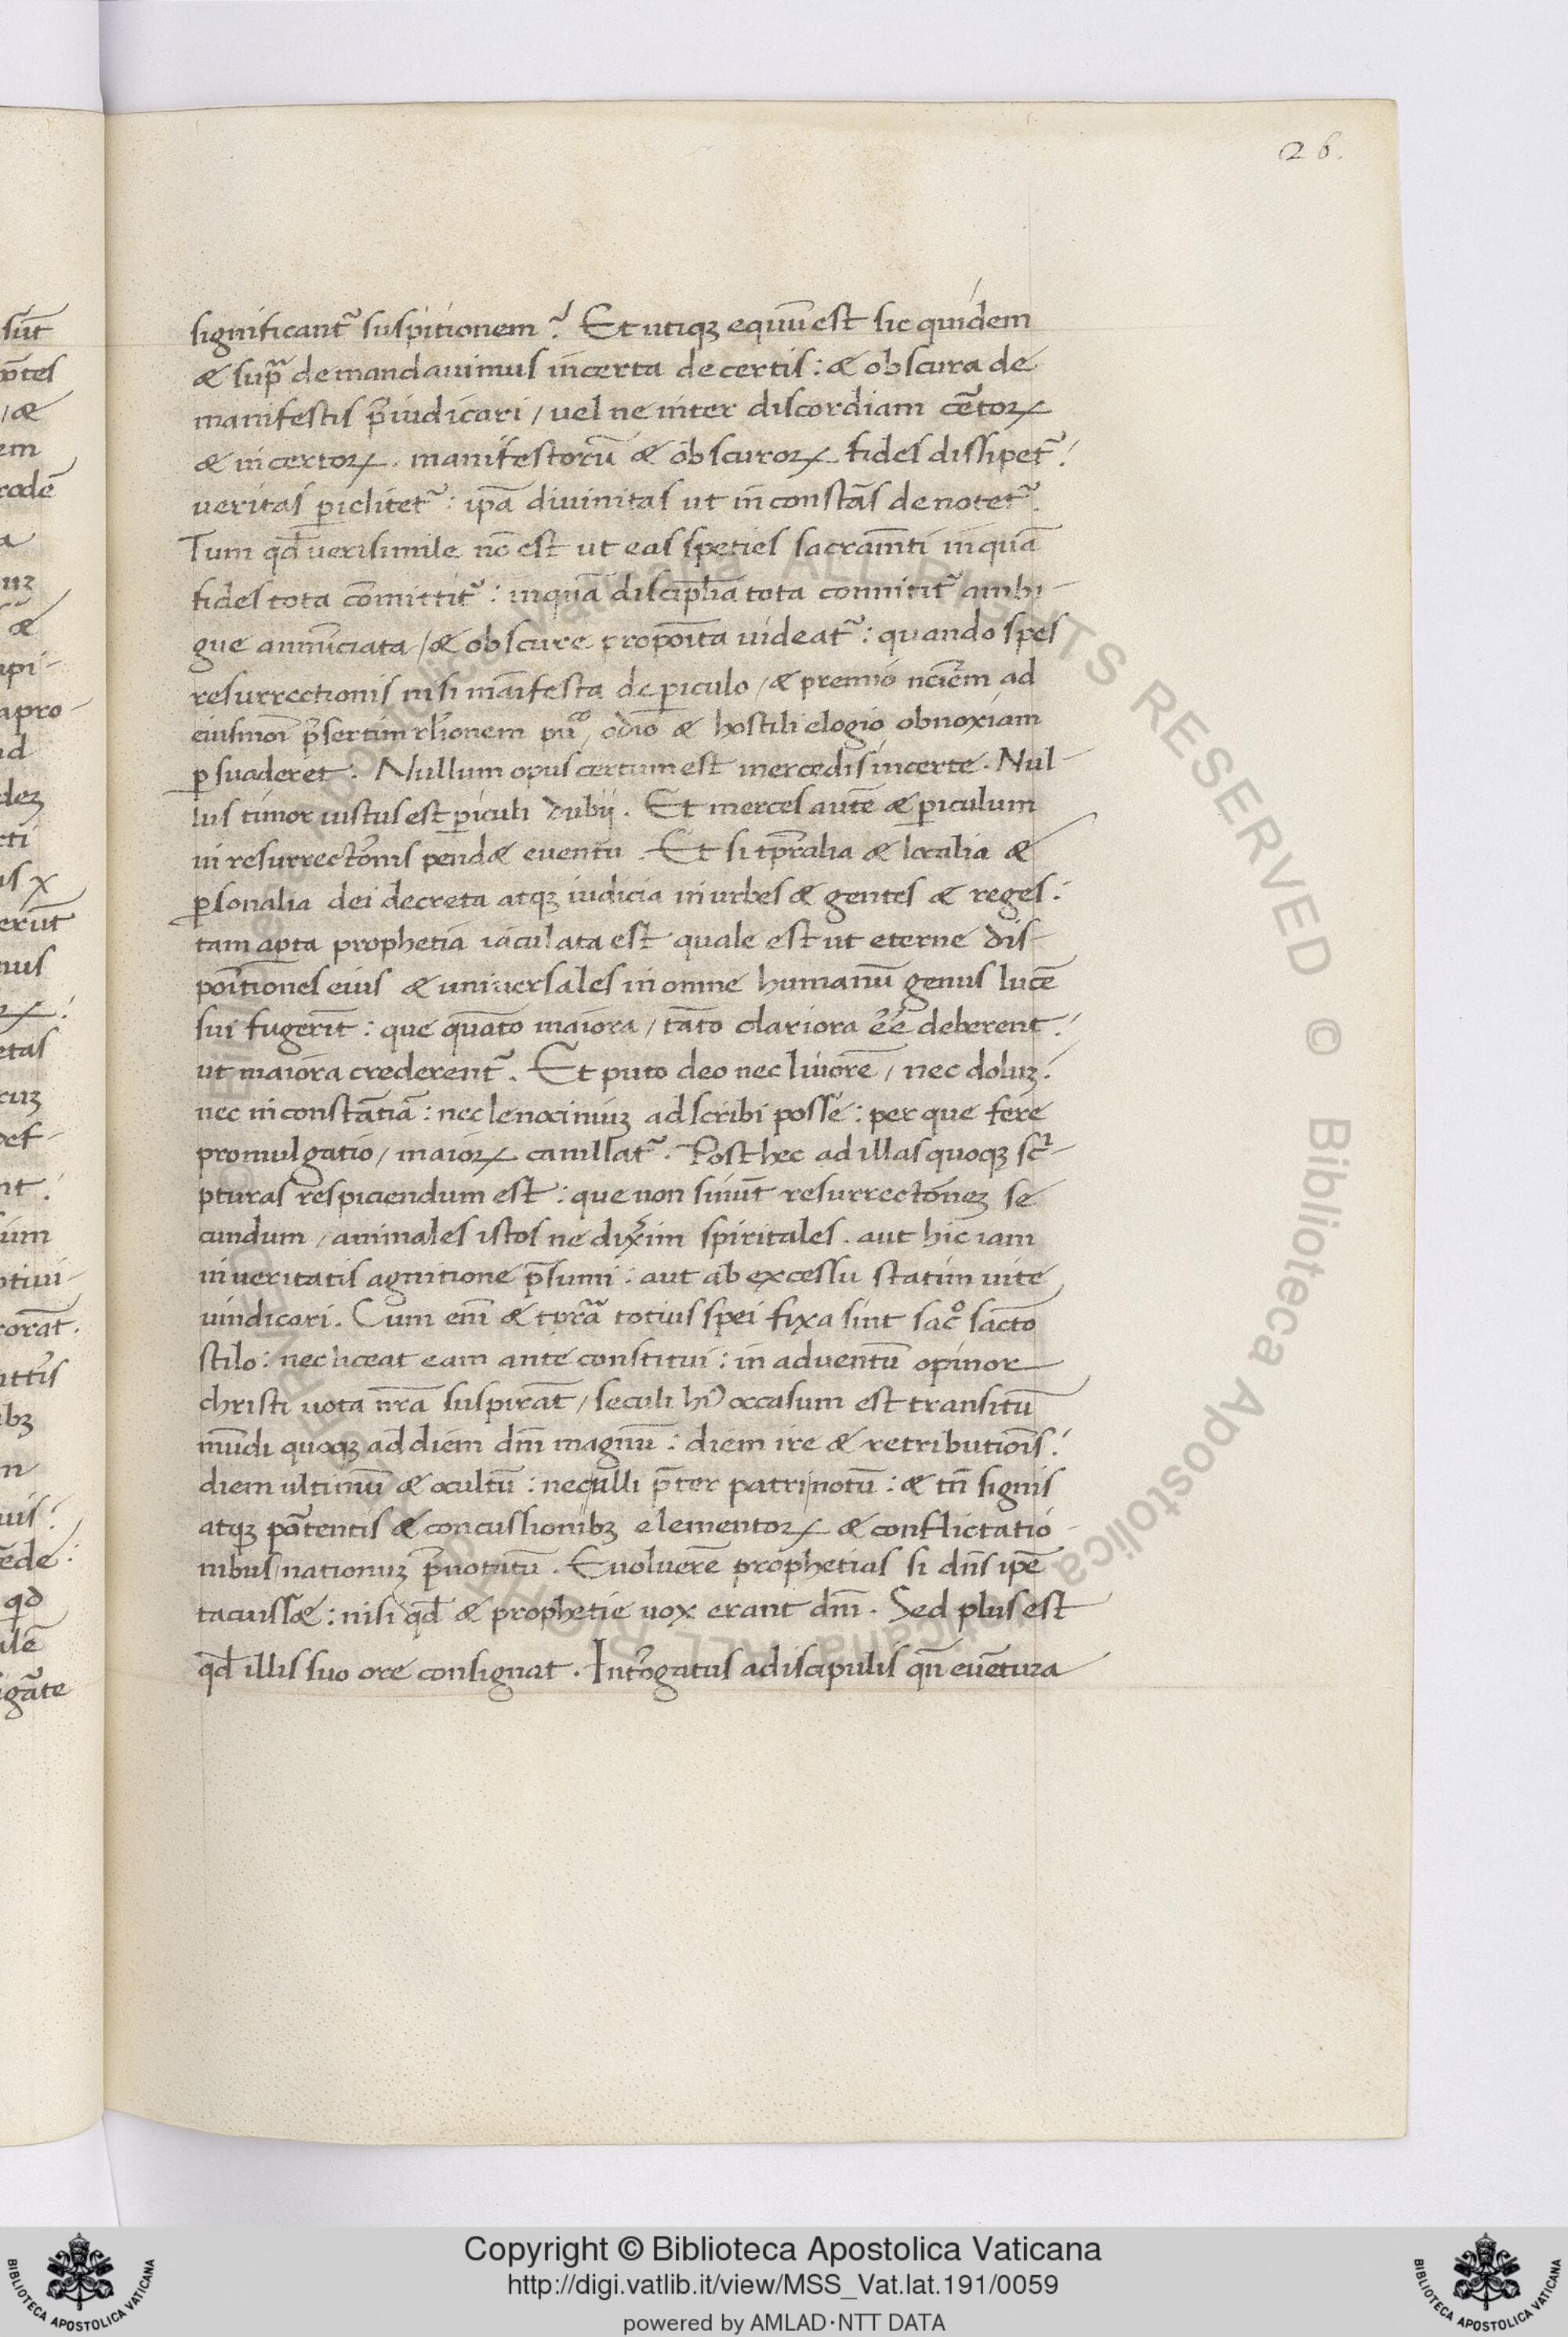 26.
significant᷑ suspitionem? Et utiqꝫ equū est sic quidem
& sup̄ demandauimus incerta de certis: & obscura de
manifestis p̄iudicari / vel ne inter discordiam c̄torꝝ
& incertorꝝ. manifestorū & obscurorꝝ fides dissipet᷑:
veritas ꝑiclitet᷑: ip̄a diuinitas ut inconstās denotet᷑.
Tum qđ verisimile nō est ut eas speties sacram̄ti in quā
fides tota cōmittit᷑: in quā disciplīa tota connitit᷑ ambi-
gue annūciata / & obscure propoīta uideat᷑: quando spes
resurrectionis nisi māifesta de ꝑiculo / & premio nēiem ad
eiusmōi p̄sertim rl̄ionem pu͞co, odio & hostili elogio obnoxiam
ꝑsuaderet. Nullum opus certum est mercedis incerte. Nul-
lus timor iustus est ꝑiculi dubij. Et merces autē & ꝑiculum
in resurrectōnis pend& euentu. Et si tp̄ralia & localia &
ꝑsonalia dei decreta atqꝫ iudicia in urbes & gentes & reges:
tam aꝑta prophetia iaculata est quale est ut eterne dis-
poītiones eius & uniuersales in omne humanū genus lucē
sui fugerīt: que quāto maiora / tāto clariora ēē deberent:
ut maiora crederent᷑. Et puto deo nec liuorē, nec doluꝫ:
nec inconstātiā: nec lenociniuꝫ adscribi posse: per que fere
promulgatio, maiorꝝ cauillat᷑. Post hec ad illas quoqꝫ scͥ-
pturas respiciendum est: que non sinūt resurrectōneꝫ se
cundum, animales istos ne dix̄im spiritales. aut hic iam
in ueritatis agnitione p̄sumi: aut ab excessu statim uite
uindicari. Cum em̄ & tp̄ra totius spei fixa sint sac̊ sācto
stilo: nec liceat eam ante constitui: in aduentū opinor
christi uota nr̄a suspirāt, seculi hꝰ occasum est transitū
mūdi quoqꝫ ad diem dn̄i magnū: diem ire & retributiōis:
diem ultimū & ocultū: nec ulli p̄ter patri notū: & tn̄ signis
atqꝫ poͬtentis & concussionibꝫ elementorꝝ & conflictatio-
nibus nationuꝫ p̄notatū. Euoluerē prophetias si dn̄s ip̄e
tacuiss&: nisi qđ & prophetie uox erant dn̄i. Sed plus est
qđ illis suo ore consignat. Int̄rogatus a discipulis qn̄ euētura
sūt
/ &
em
&
upi-
apro-
nd
erūt
nus
etas
def-
nt.
otiui-
orāt.
qđ
Bibliotheca Apostolica Vaticana ALL RIGHTS RESERVED ©
Copyright © Biblioteca Apostolica Vaticana
http://digi.vatlib.it/view/MSS_Vat.lat.191/0059
powered by AMLAD·NTT DATA
BIBLIOTECA APOSTOLICA VATICANA
BIBLIOTECA APOSTOLICA VATICANA